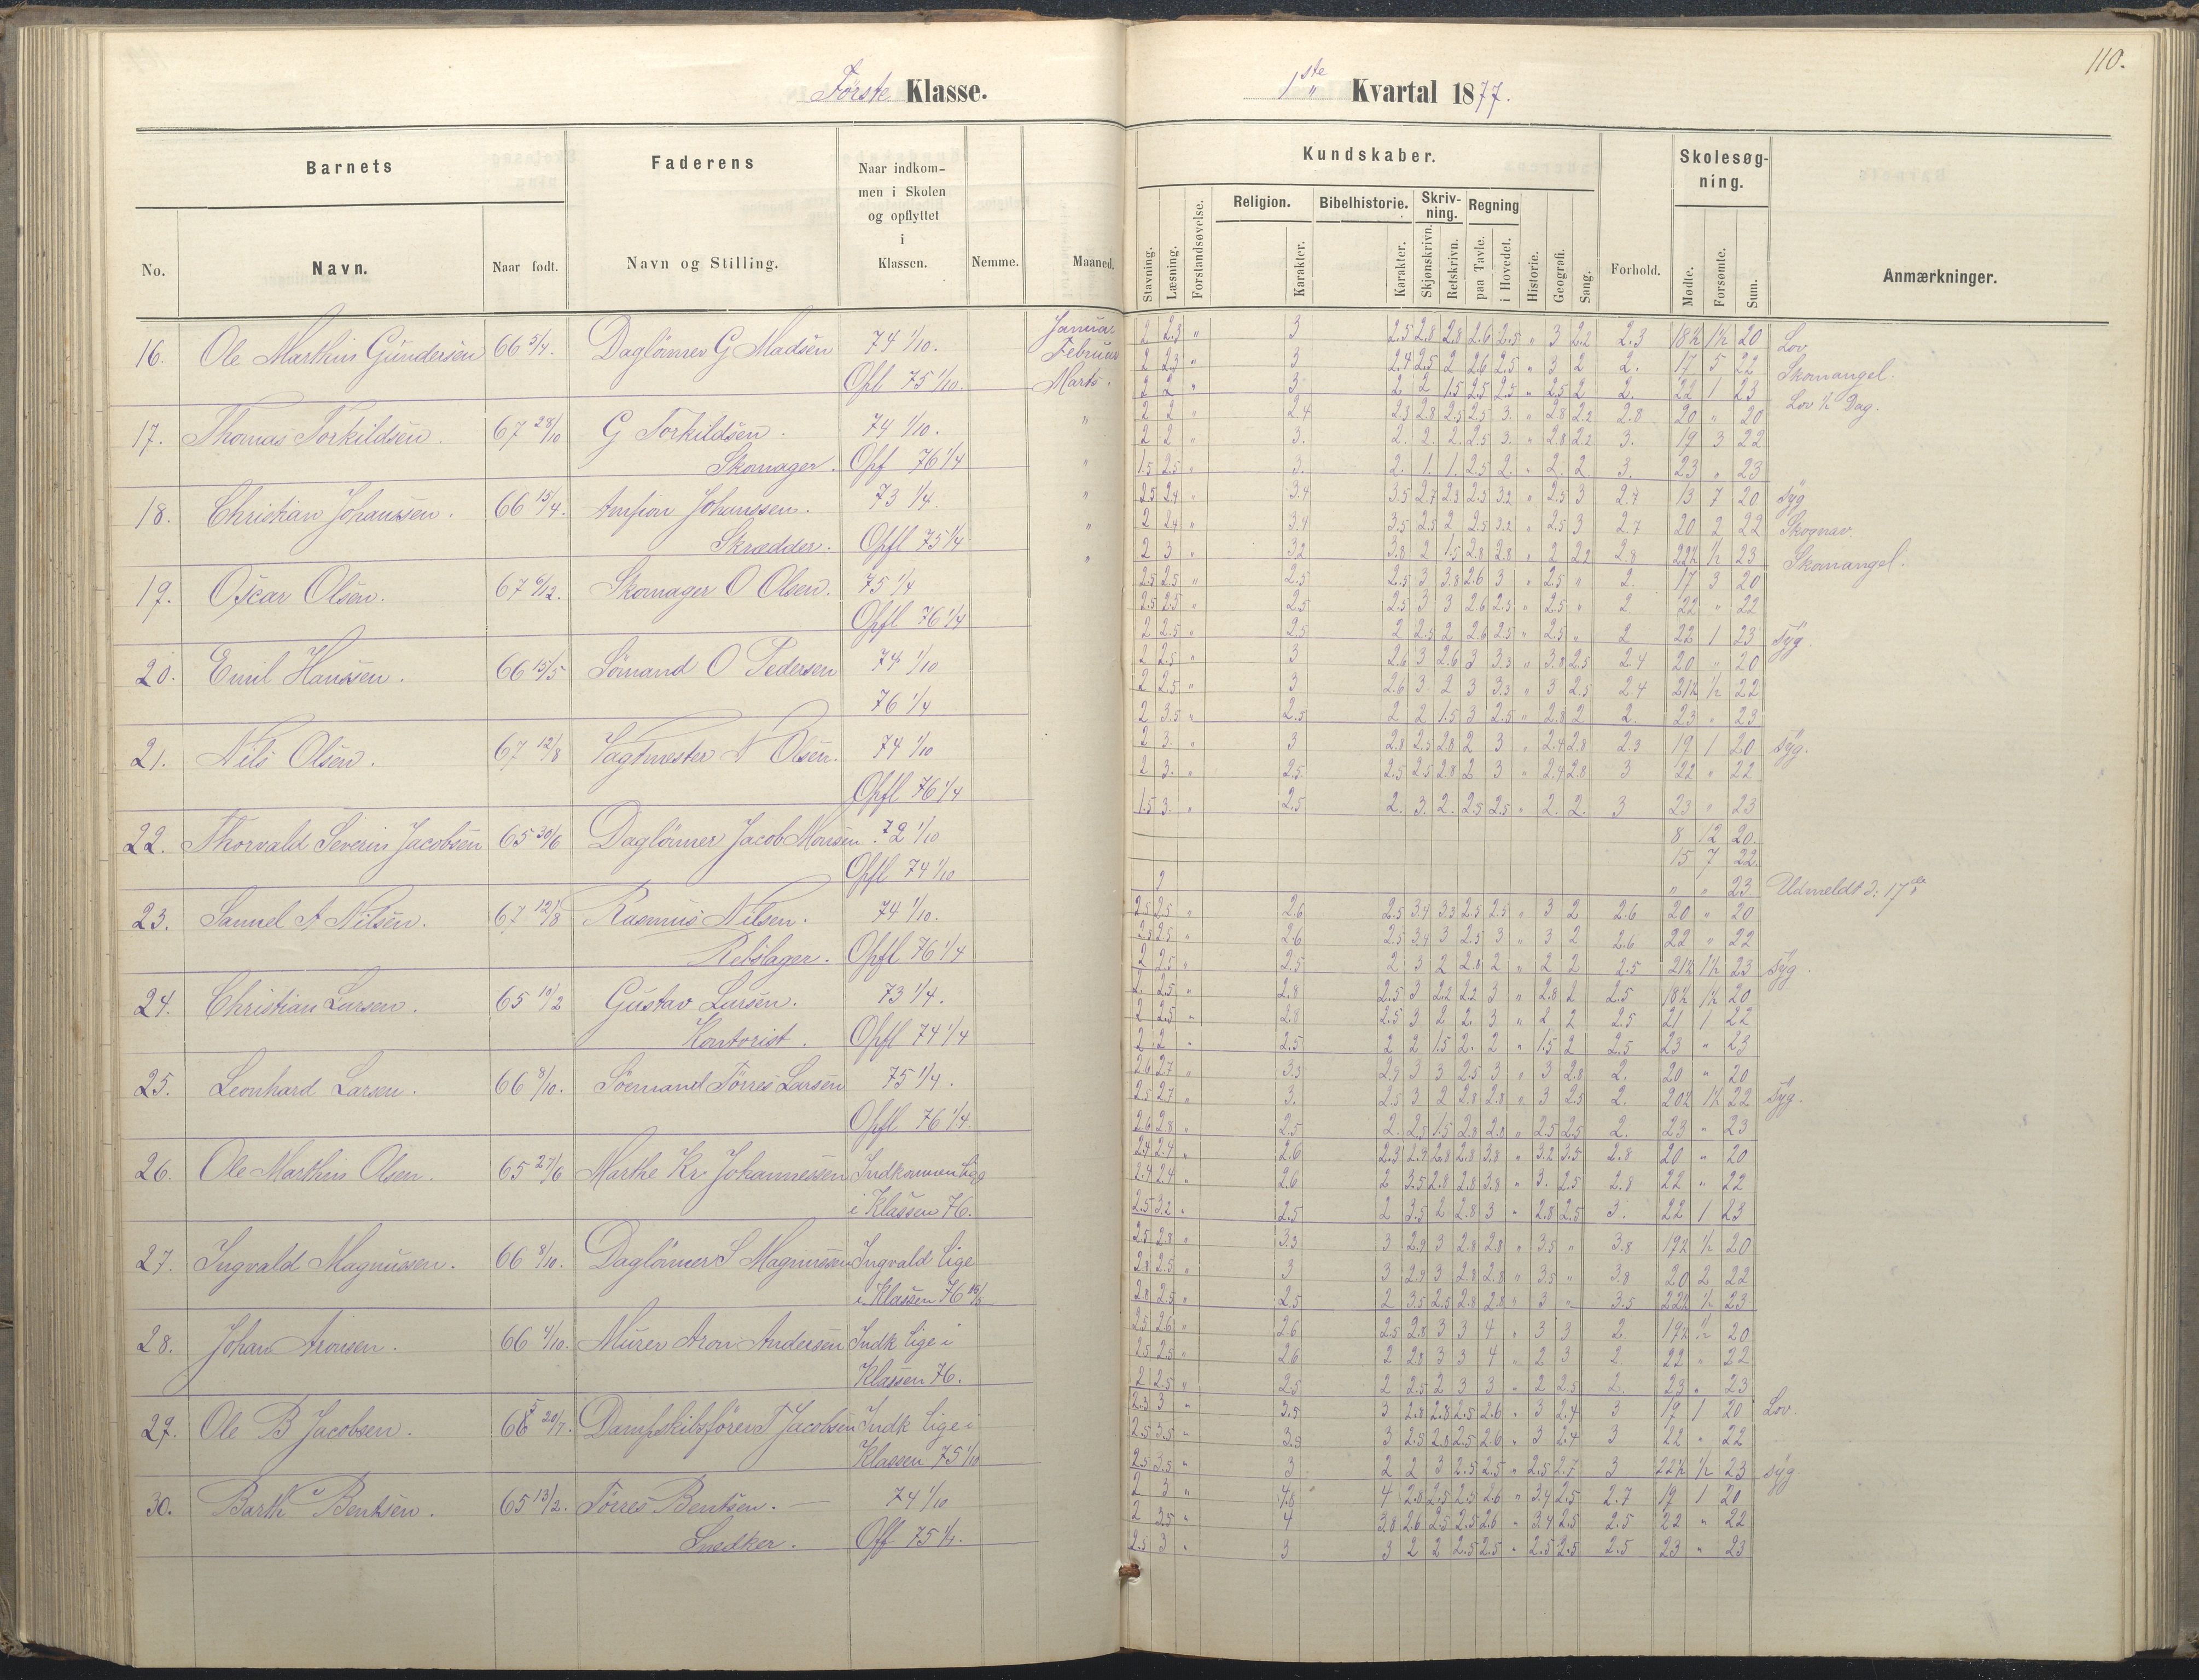 110.
Første Klasse.
1ste Kvartal 1877.
Barnets
Faderens
Naar indkom-
men i Skolen
og opflyttet
i
Klassen.
Nemme.
Maaned.
No.
Navn.
Naar født.
Navn og Stilling.
Kundskaber.
Skolesøg-
ning.
Stavning.
Læsning.
Forstandsøvelse.
Religion.
Karakter.
Bibelhistorie.
Karakter.
Skriv-
ning.
Skjønskrivn.
Retskrivn.
Regning
paa Tavle.
i Hovedet.
Historie.
Geografi.
Sang.
Forhold.
Mødte.
Forsømte.
Sum.
Anmærkninger.
16. Ole Marthin Gundersen 66 5/4. Daglönner G Madsen 74 1/10. Januar
Opfl 75 1/10 Februar
Marts.
17. Thomas Torkildsen. 67 28/10 G Torkildsen. 74 1/10. "
Skomager. Opf 76 1/4 "
18. Christian Johanssen. 66 15/4. Johanssen. 73 1/4. "
Skrædder. Opfl 75 1/4 "
19. Oscar Olsen. 67 6/12. Skomager O Olsen. 75 1/4
Opfl 76 1/4
20. Emil Hanssen. 66 15/5 Sömand O Pedersen 74 1/10
76 1/4
21. Nils Olsen. 67 12/8 Vagtmester N Olsen. 74 1/10
Opfl 76 1/4
22. Thorvald Severin Jacobsen 65 30/6 Daglönner Jacob Monsen. 72 1/10
Opfl 74 1/10
23. Samuel A Nilsen. 67 12/8 Rasmus Nilsen. 74 1/10.
Rebslager. Opfl 76 1/4
24. Christian Larsen. 65 10/2 Gustav Larsen. 73 1/4.
Kontorist. Opfl 74 1/4
25. Leonhard Larsen. 66 8/10. Söemand Törres Larsen 75 1/4.
Opfl 76 1/4.
26. Ole Marthin Olsen. 65 27/6 Marthe Kr. Johannessen Indkommen lige
i Klassen 76.
27. Ingvald Magnussen. 66 8/10. Daglönner S Magnussen Ingvald lige
i Klassen 76
28. Johan Aronsen. 66 4/10. Murer Aron Andersen Indk lige i
Klassen 76.
29. Ole B Jacobsen. 20/7. Dampskibsförer T Jacobsen Indk lige i
Klassen 75 1/10
30. Barth Bentsen. 65 13/2. Törres Bentsen. — 74 1/10
Snedker. Off 75 1/4.
2 2.3 " 3 2.5 2.8 2.8 2.6 2.5 " 3 2.2 2.3 18½ 1½ 20 Lov
2 2.3 " 3 2.4 2.5 2 2.6 2.5 " 3 2 2. 17 5 22 Skomangel.
2 2 " 3 2 2 1.5 2.5 2.5 " 2.5 2 2. 22 1 23 Lov ½ Dag.
2 2 " 2.4 2.3 2.8 2.5 2.5 3. " 2.8 2.2 2.8 20 " 20
2 2 " 3. 2. 2. 2. 2.5 3. " 2.8 2.2 3. 19 3 22
1.5 2.5 " 3. 2. 1. 1. 2.5 2. " 2. 2 3. 23 " 23
2.5 2.4 " 3.4 3.5 2.7 2.3 2.5 3.2 " 2.5 3 2.7 13 7 20 syg
2 2.4 " 3.4 3.5 2.5 2 2.5 3.2 " 2.5 3 2.7 20 2 22
2 3 " 3.2 3.8 2 1.5 2.8 2.8 " 2 2.2 2.8 22½ ½ 23 Skomangel.
2.5 2.5 " 2.5 2.5 3 3.8 2.6 3 " 2.5 " 2. 17 3 20
2.5 2.5 " 2.5 2.5 3 3 2.6 2.5 " 2.5 " 2 22 " 22
2 2.5 " 2.5 2 2.5 2 2.6 2.5 " 2.5 " 2 22 1 23 syg.
2 2.5 " 3 2.6 3 2.6 3 3.3 " 3.8 2.5 2.4 20 " 20
2 2.5 " 3 2.6 3. 2 3 3.3 " 3 2.5 2.4 21½ ½ 22
2 3.5 " 2.5 2 2 1.5 3 2.5 " 2.8 2 2. 23 " 23
2 3. " 3 2.8 2.5 2.8 2 3 " 2.4 2.8 2.3 19 1 20 syg.
2 3. " 2.5 2.5 2.5 2.8 2 3 " 2.4 2.8 3 22 " 22
1.5 3. " 2.5 2. 3. 2. 2.5 2.5 " 2. 2. 3 23 " 23
8 12 20.
15 7 22.
2 " " 23 Udmeldt d. 17de
2.5 2.5 " 2.6 2.5 3.4 3.3 2.5 2.5 " 3 2 2.6 20 " 20
2.5 2.5 " 2.6 2.5 3.4 3 2.5 3 " 3 2 2.6 22 " 22
2 2.5 " 2.5 2 3 2 2.8 2 " 2 2 2.5 21½ 1½ 23 syg.
2. 2.5 " 2.8 2.5 3 2.2 2.2 3 " 2.8 2 2.5 18½ 1½ 20
2 2.5 " 2.8 2.5 3 2 2. 3 " 2 2 2.5 21 1 22
2 2 " 2.5 2 2 1.5 2. 2 " 1.5 2 2.5 23 " 23
2.6 2.7 " 3.3 2.9 3 3 2.5 3 " 3 2.8 2. 20 " 20
2.5 2.7 " 3. 2.5 3 2 2.8 2.8 " 3 2.5 2. 20½ 1½ 22 syg.
2.6 2.8 " 2.5 2. 2.5 1.5 2.8 2.8 " 2.5 2.5 2. 23 " 23
2.4 2.4 " 2.6 2.3 2.9 2.8 2.8 3.8 " 3.2 3.5 2.8 20 " 20
2.4 2.4 " 2.6 2 3.5 2.8 2.8 3.8 " 3. 2.5 2.8 22 " 22
2.5 3.2 " 2.5 2 3.5 2 2.8 3 " 2.8 2.5 3. 22 1 23
2.5 2.8 " 3.3 3 2.9 3 2.8 2.8 " 3.5 " 3.8 19½ ½ 20
2.8 2.5 " 3 3 2.9 3 2.8 2.8 " 3.5 " 3.8 20 2 22
2.8 2.5 " 2.5 2 3.5 2.5 2.8 2.8 " 3 " 3.5 22½ ½ 23
2.5 2.6 " 2.6 2.5 2.8 3 3 4 " 3 3 2 19½ ½ 20
2.5 2.5 " 2.6 2 2.8 3 3 4 " 2 3 2. 22 " 22
2 2.5 " 2.5 2 2.5 2 3 3 " 2 2.5 2. 23 " 23
2.3 3 " 3.5 3 2.8 2.8 2.5 2.6 " 3 2.4 3 19 1 20 Lov.
2.5 3.5 " 3.5 3 2.5 2.8 2.5 2.6 " 3 2.4 3 22 " 22
2.5 3.5 " 3 2 2 3 2.5 2.5 " 2.5 2.7 3 22½ ½ 23 syg.
2 3 " 4.8 " 4 2.8 2.5 2.5 2.6 " 3.4 2.5 2.7 19 1 20
2 3.5 " 4 3.8 2.6 2.5 2.5 2.6 " 3.4 2.5 2.5 22 " 22
2.5 3 " 3 3 2 2 2.5 2.5 " 2.5 2.5 2.5 23 " 23